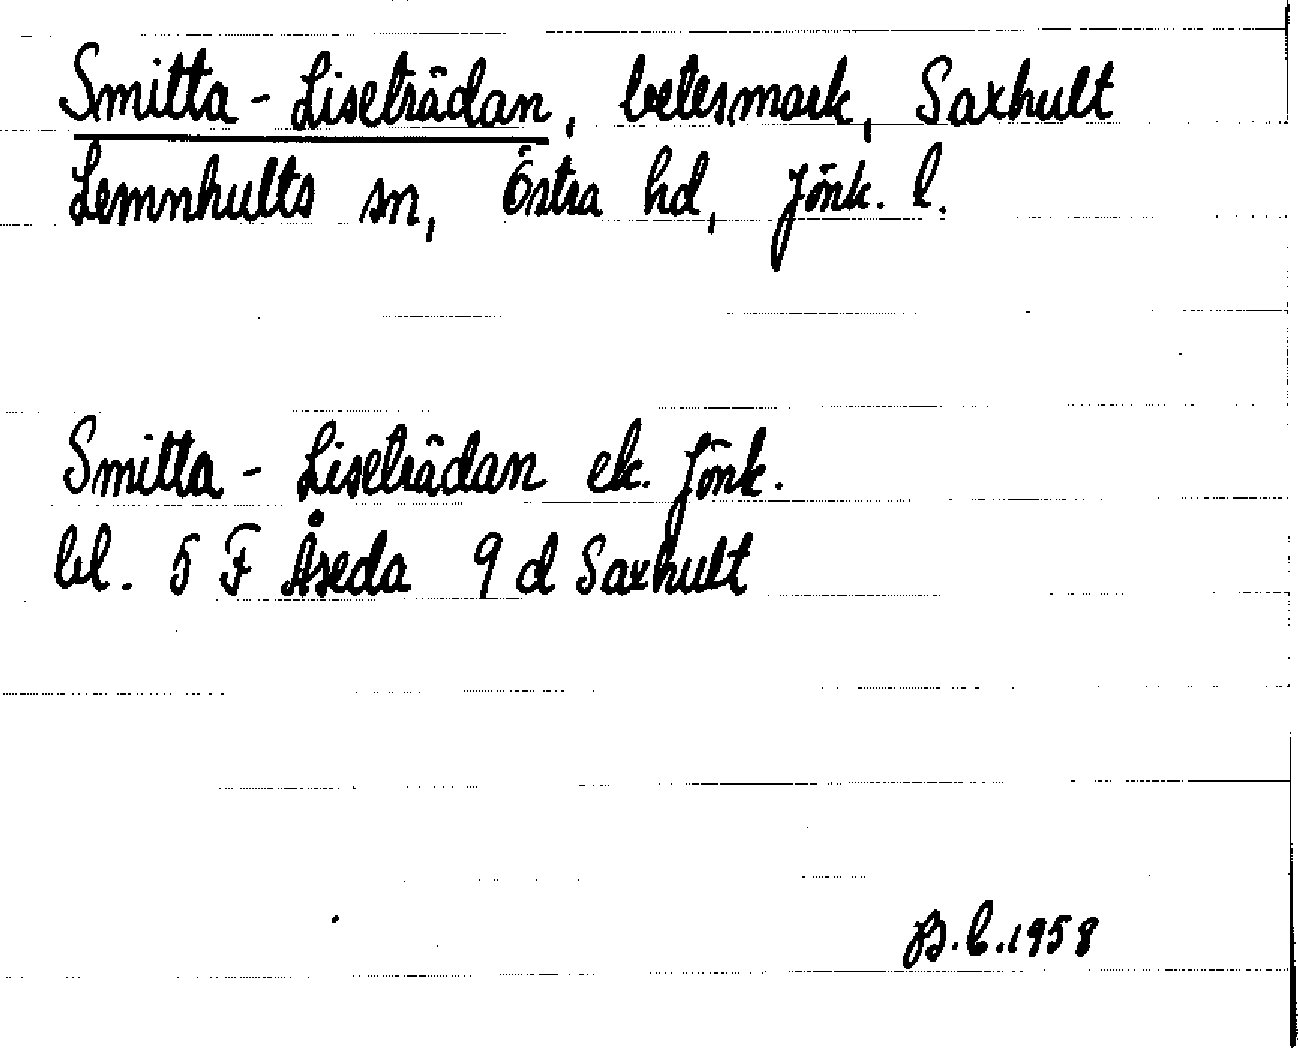 Smitta - Liseträdan, betesmark, Saxhult
Lemnhults sn, Östra hd, Jönk. l.
Smitta - Liseträdan ek. Jönk.
bl. 5 F Åseda 9 d Saxhult
B.C.1958